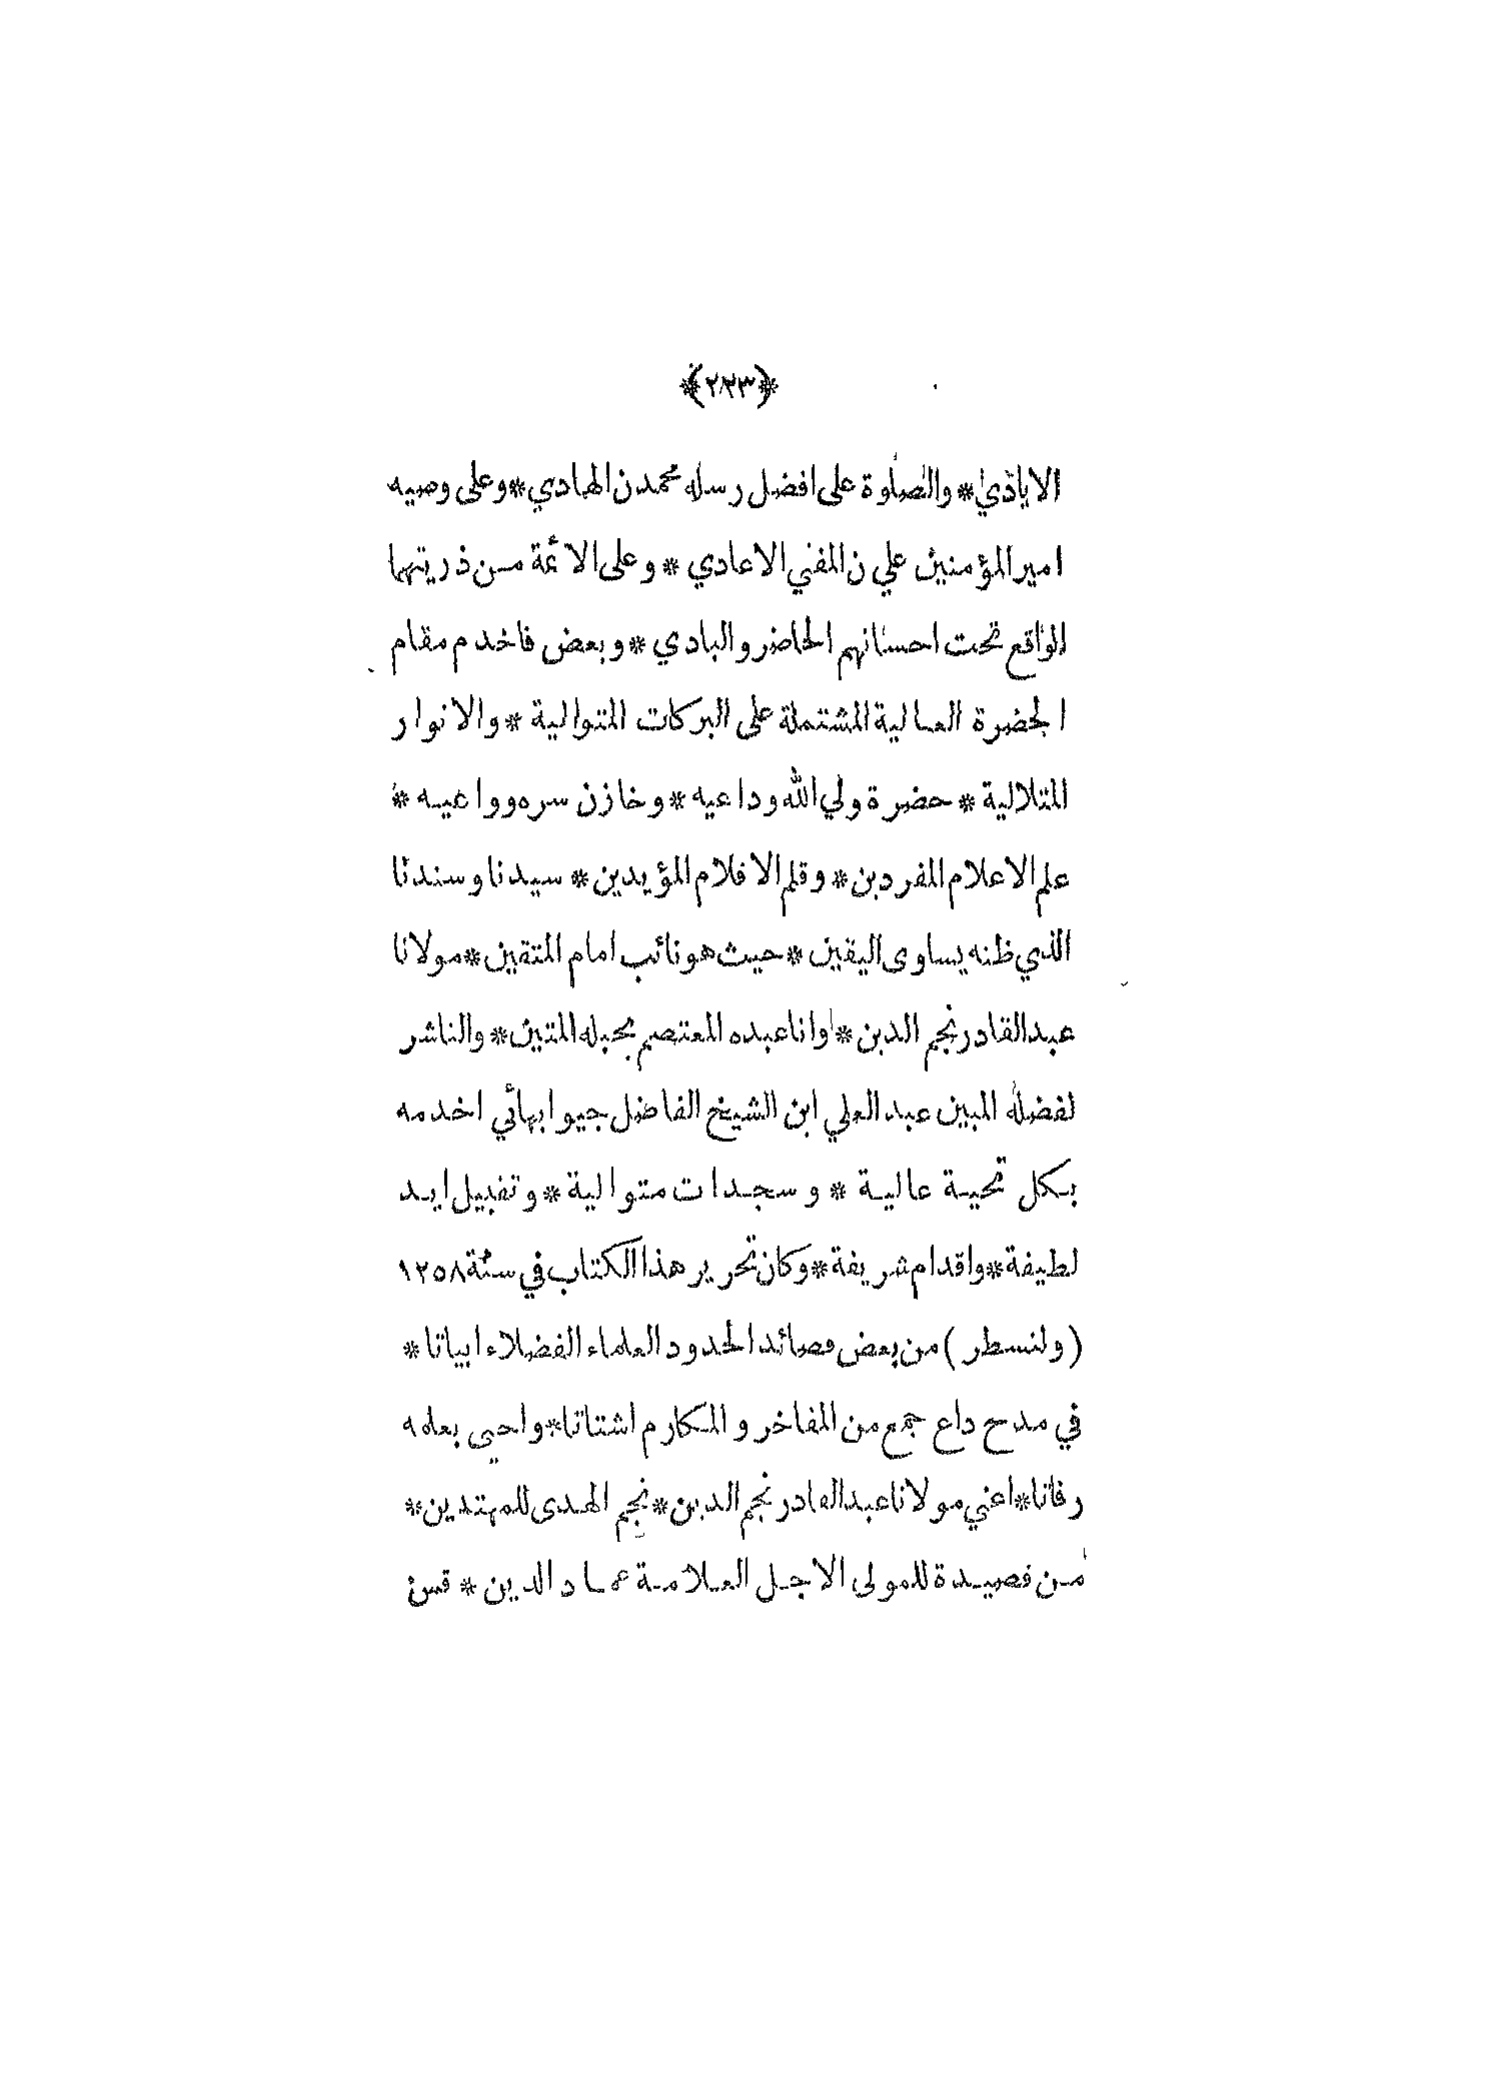 *(٢٨٣)*
الايادي * والصلوة على افضل رسله محمدن الهادي * وعلى وصيه
امير المؤمنين علي ن المفني الاعادي * وعلى الائمة من ذريتهما
الواقع تحت احسانهم الحاضر والبادي * وبعض فاخدم مقام
الحضرة العالية المشتملة على البركات المتوالية * والانوار
المتلالية * حضرة ولي الله وداعيه * وخازن سره وواعيه *
علم الاعلام المفردين * وقلم الاقلام المؤيدين * سيدنا وسندنا
الذي ظنه يساوى اليقين * حيث هو نائب امام المتقين * مولانا
عبد القادر نجم الدين * وانا عبده المعتصم بحبله المتين * والناشر
لفضله المبين عبد العلي ابن الشيخ الفاضل جيوابهائي اخدمه
بكل تحية عالية * وسجدات متوالية * وتقبيل ايد
لطيفة * واقدام شريفة * وكان تحرير هذا الكتاب في سنة ١٢٥٨
(ولنسطر) من بعض قصائد الحدود العلماء الفضلاء ابياتا *
في مدح داع جمع من المفاخر والمكارم اشتاتا * واحيى بعلمه
رفاتا * اعني مولانا عبد القادر نجم الدين * نجم الهدى للمهتدين *
من قصيدة للمولى الاجل العلامة عماد الدين * قس